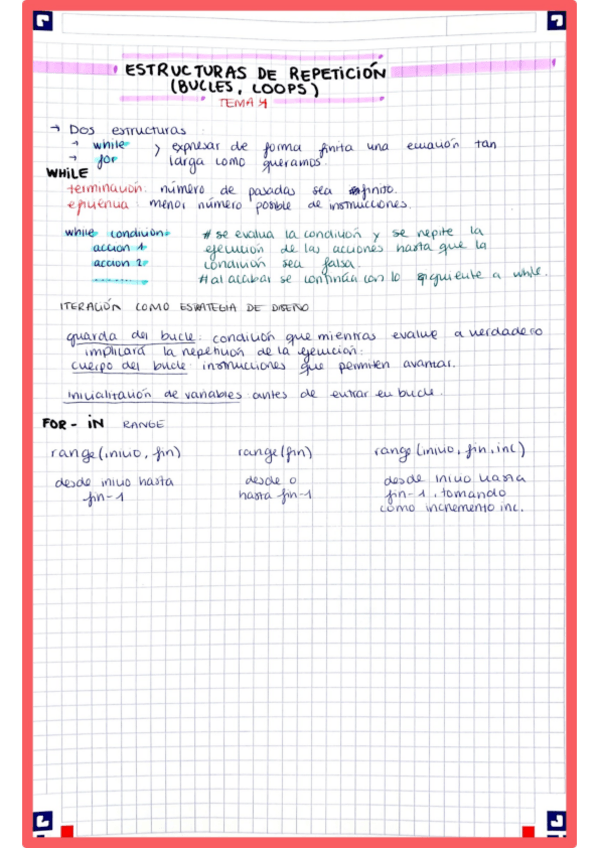 ESTRUCTURAS DE REPETICIÓN
(BUCLES, LOOPS)
TEMA 4
→ Dos estructuras:
→ while
→ for
> expresar de forma finita una ecuación tan
larga como queramos.
WHILE
terminación: número de pasadas sea finito.
eficiencia: menor número posible de instrucciones.
while condición:
acción 1
acción 2
..........
# se evalua la condición y se repite la
ejecución de las acciones hasta que la
condición sea falsa.
# al acabar se continúa con lo siguiente a while.
ITERACIÓN COMO ESTRATEGIA DE DISEÑO
guarda del bucle: condición que mientras evalue a verdadero
implicará la repetición de la ejecución.
cuerpo del bucle: instrucciones que permiten avanzar.
inicialización de variables antes de entrar en bucle.
FOR - IN RANGE
range(inicio, fin) range(fin) range(inicio, fin, inc)
desde inicio hasta
fin-1
desde 0
hasta fin-1
desde inicio hasta
fin-1, tomando
como incremento inc.